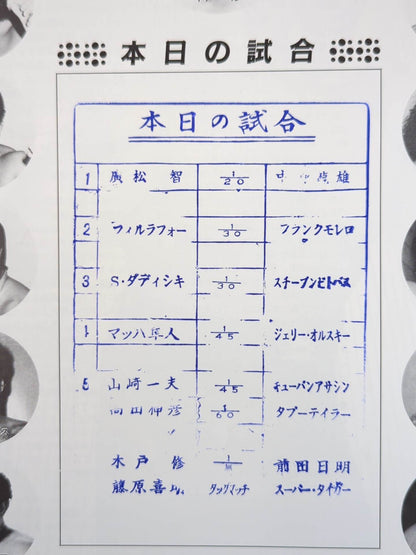 本日の試合
本日の試合
1 廣松 智 1/20 雄
2 フィルラフォー 1/30 フランクモレロ
3 S・ダディシキ 1/30 スチーブンピトバス
4 マッハ隼人 1/45 ジェリー・オルスキー
5 山崎一夫 1/45 キューバンアサシン
高田伸彦 1/60 タブーテイラー
木戸 修 1/無 前田日明
藤原喜明 タッグマッチ スーパー・タイガー